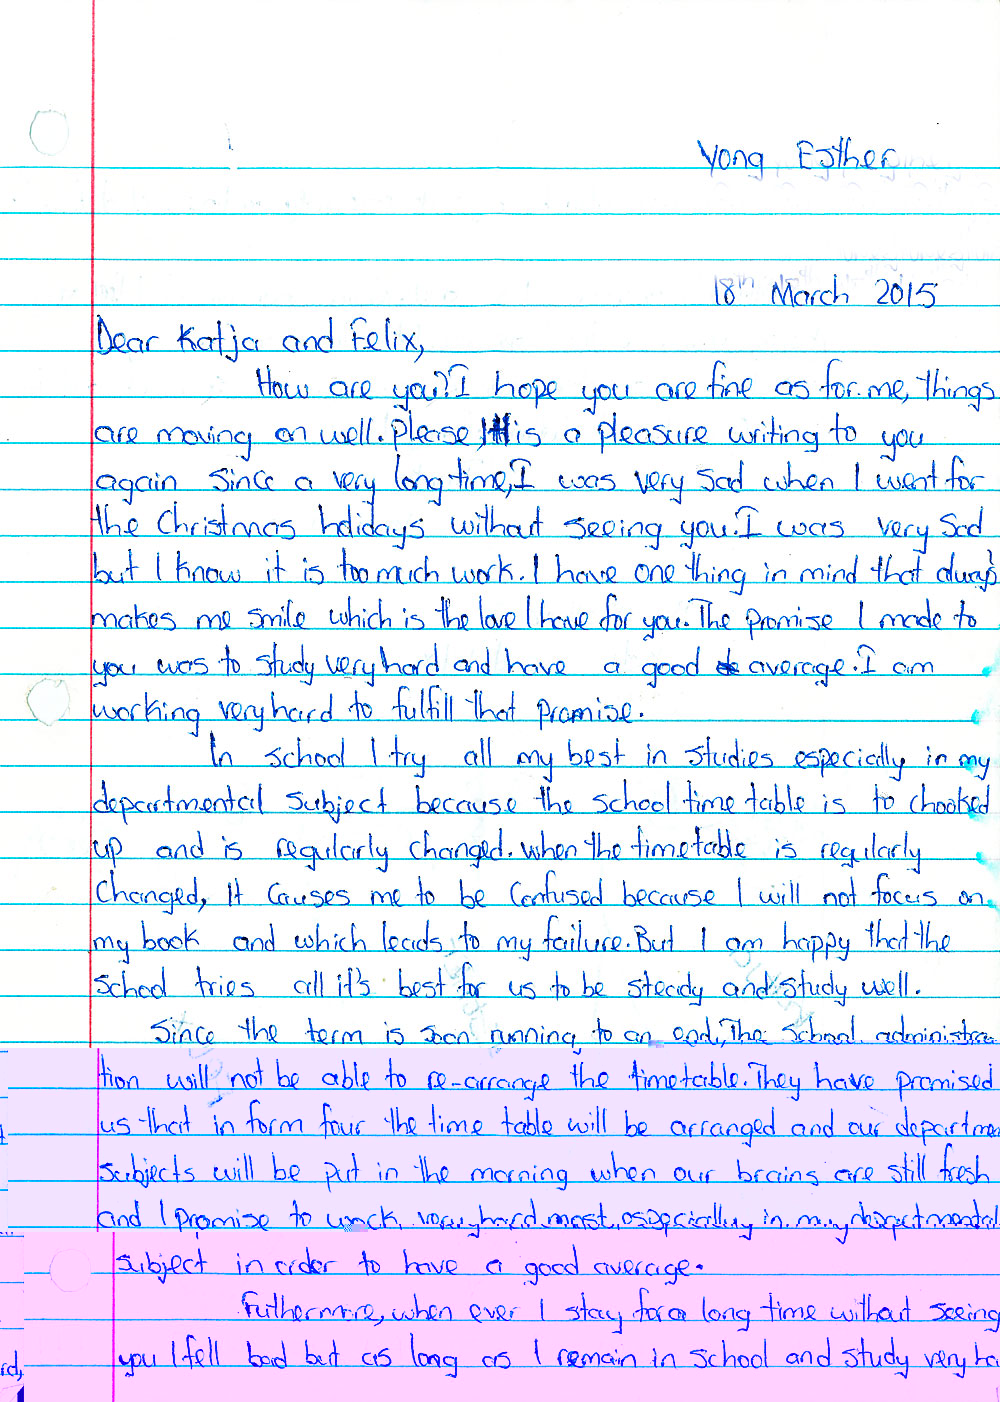 Yong Esther
18th March 2015
Dear Katja and Felix,
How are you? I hope you are fine as for me, things
are moving on well. Please, It is a pleasure writing to you
again since a very long time, I was very sad when I went for
the Christmas holidays without seeing you. I was very sad
but I know it is too much work. I have one thing in mind that always
makes me smile which is the love I have for you. The promise I made to
you was to study very hard and have a good average. I am
working very hard to fulfill that promise.
In school I try all my best in studies especially in my
departmental subject because the school time table is to chooked
up and is regularly changed. when the timetable is regularly
changed, It causes me to be confused because I will not focus on
my book and which leads to my failure. But I am happy that the
school tries all it's best for us to be steady and study well.
Since the term is soon running to an end, The school administra
tion will not be able to re-arrange the timetable. They have promised
us that in form four the time table will be arranged and our departmen
subjects will be put in the morning when our brains are still fresh
and I promise to work very hard most especially in my departmental
subject in order to have a good average.
Futhermore, when ever I stay for a long time without seeing
you I fell bad but as long as I remain in school and study very ha
rd,